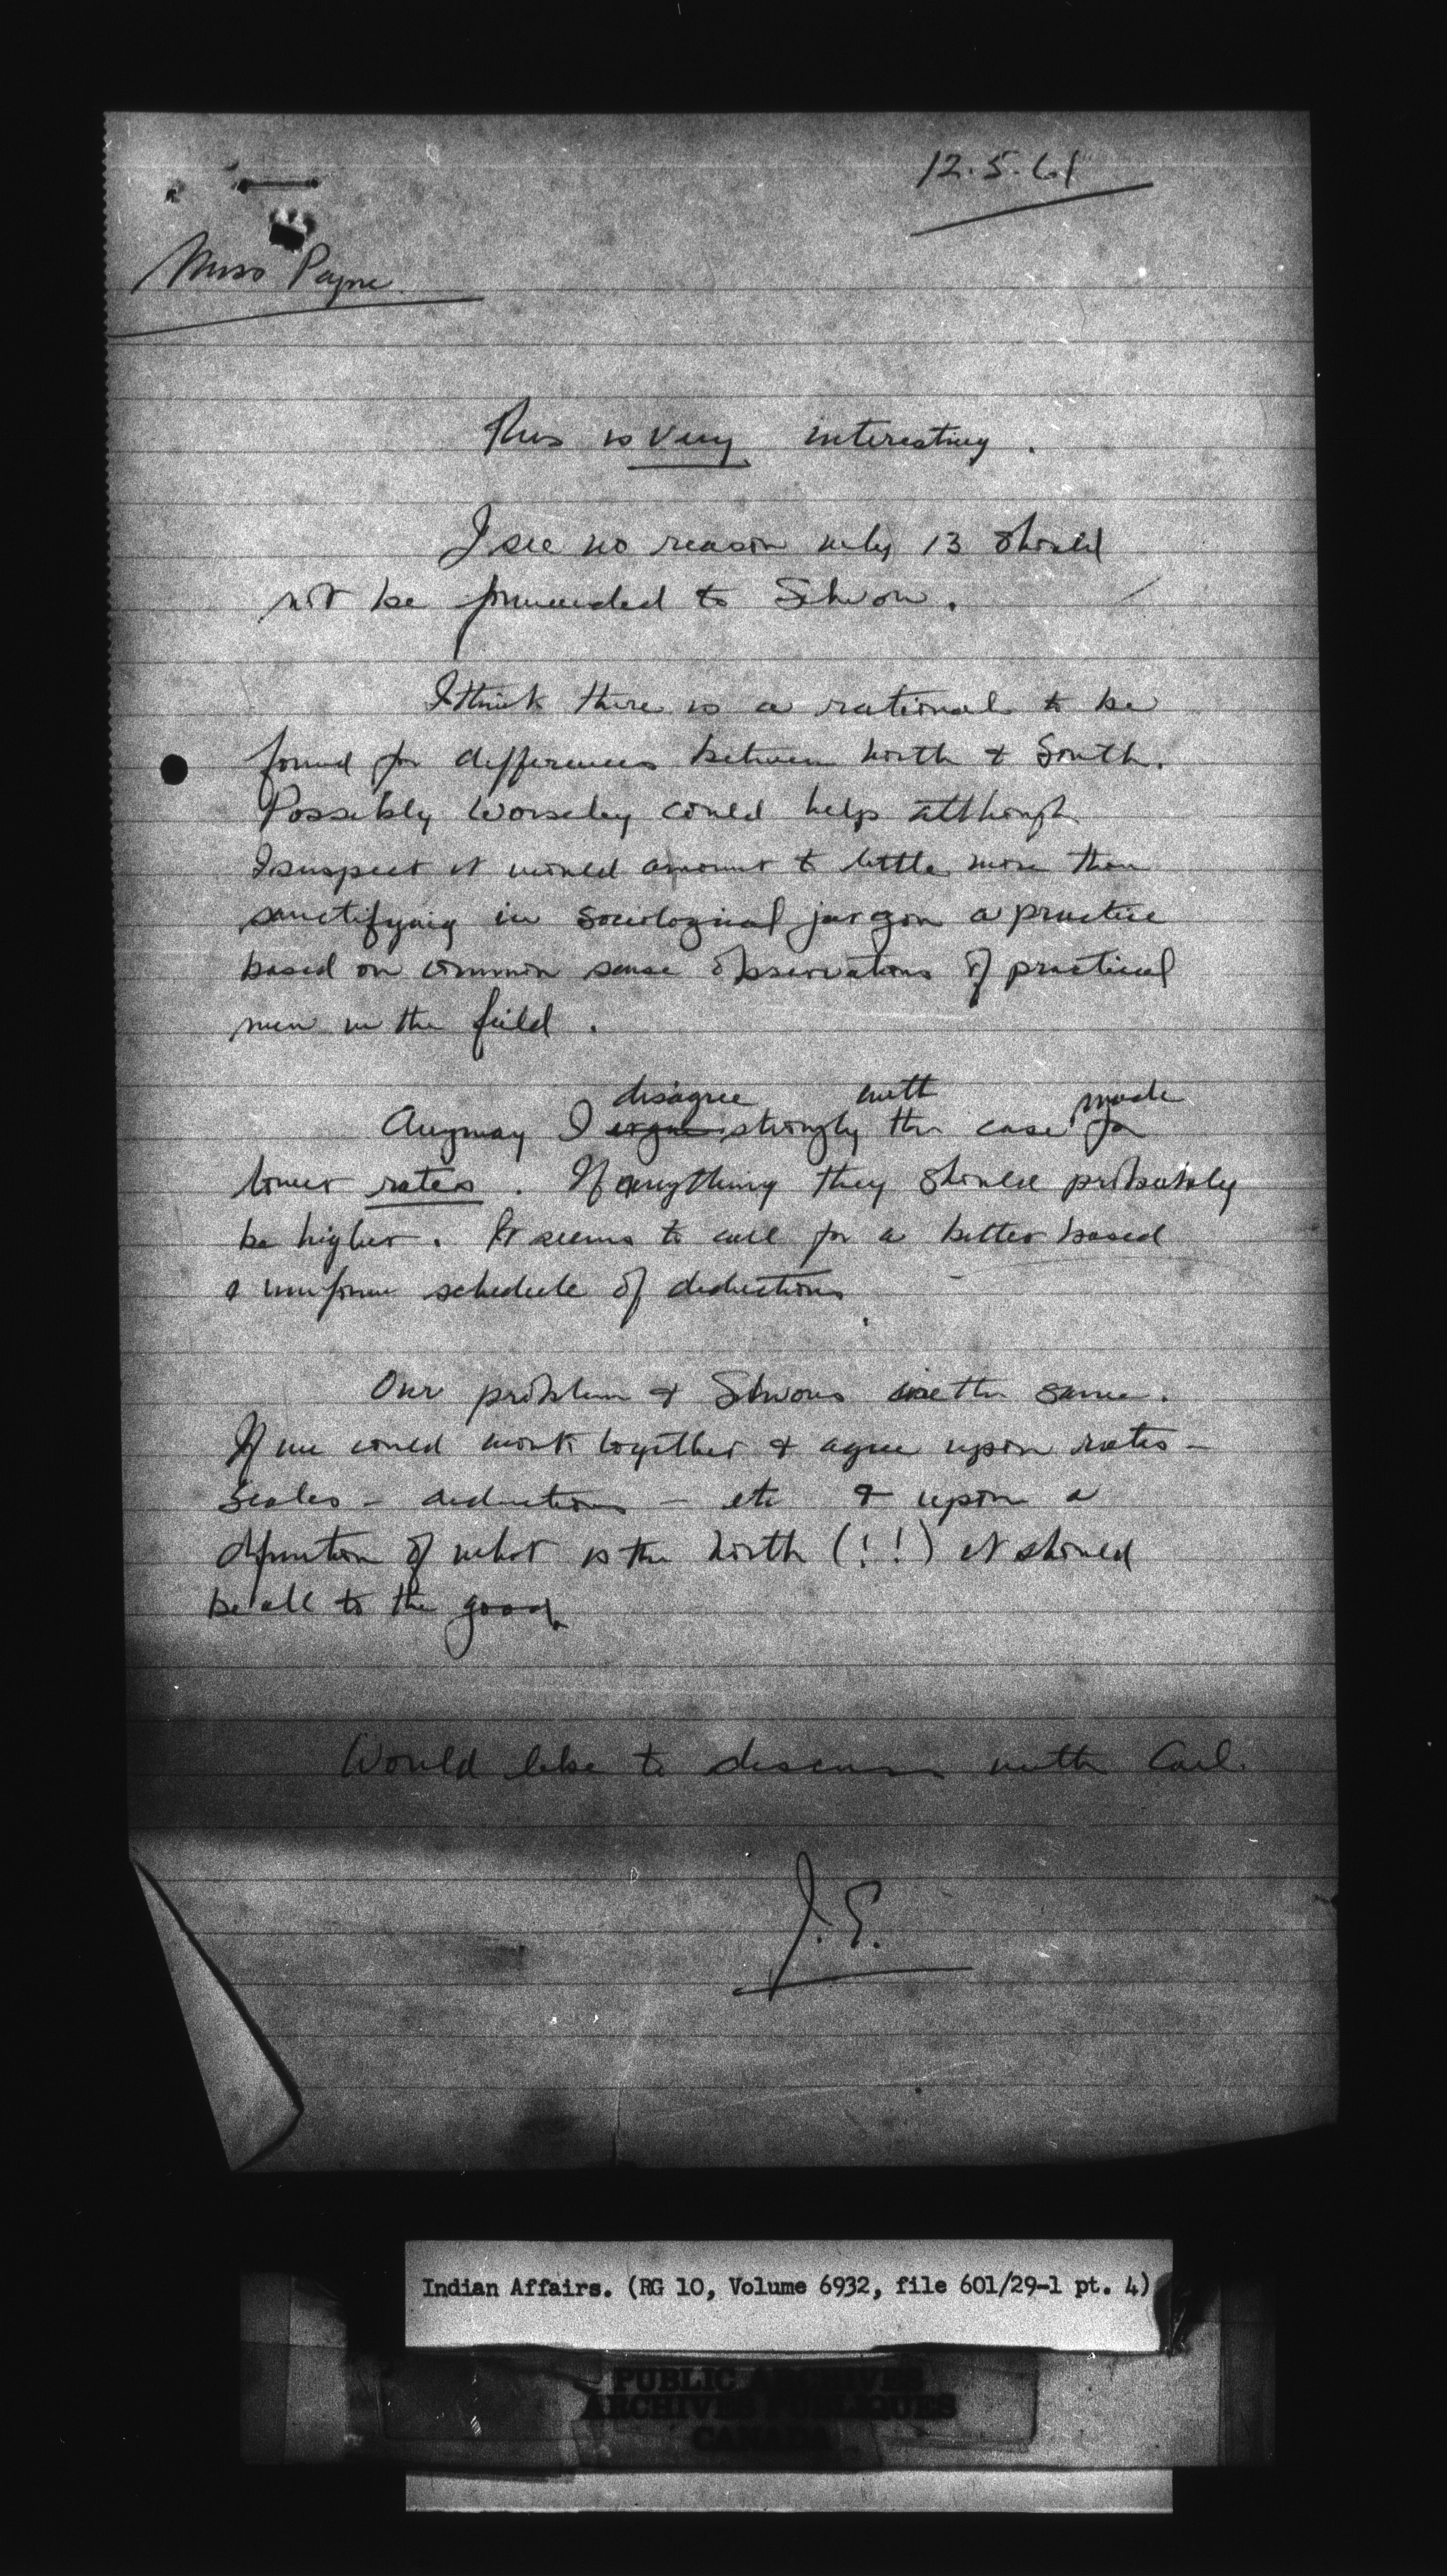 12.5.61
Miss Payne
This is very interesting.
I see no reason why 13 should
not be forwarded to
I think there is a rational to be
found for differences between North & South.
Possibly Worseley could help although
I suspect it would amount to little more than
sanctifying in sociological jargon a practice
based on common sense observations of practical
men in the field.
disagree with made
Anyway I argue strongly the case for
lower rates. If anything they should probably
be higher. It seems to call for a better based
& uniform schedule of deductions.
Our problem & are the same.
If we could work together & agree upon rates -
scales - deductions - etc & upon a
definition of what is the North (!!) it should
be all to the good.
Would like to discuss with Carl.
J.E.
Indian Affairs. (RG 10, Volume 6932, file 601/29-1 pt. 4)
PUBLIC ARCHIVES
ARCHIVES PUBLIQUES
CANADA